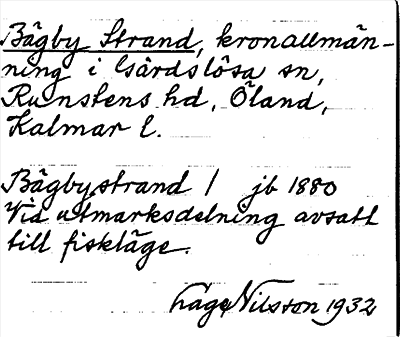 Bägby Strand, kronallmän-
ning i Gärdslösa sn,
Runstens hd, Öland,
Kalmar l.
Bägby strand / jb 1880
Vid utmarksdelning avsatt
till fiskläge.
Låge Nilsson 1932